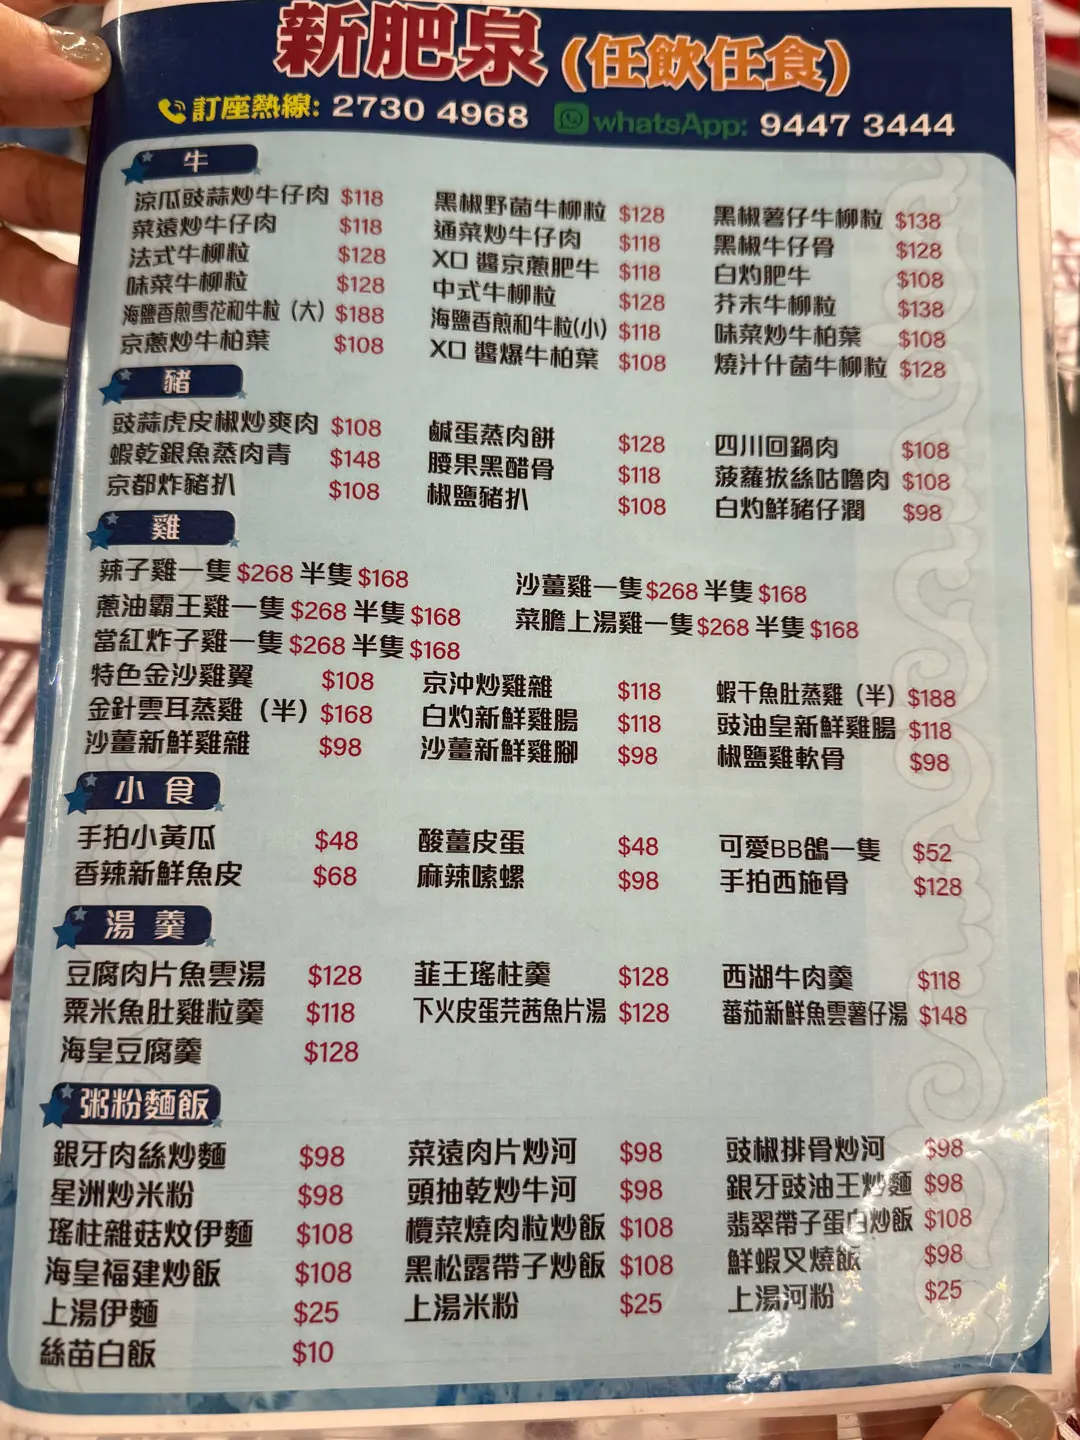 新肥泉(任飲任食)
訂座熱線: 2730 4968 whatsApp: 9447 3444
牛
涼瓜豉蒜炒牛仔肉 $118 黑椒野菌牛柳粒 $128 黑椒薯仔牛柳粒 $138
菜遠炒牛仔肉 $118 通菜炒牛仔肉 $118 黑椒牛仔骨 $128
法式牛柳粒 $128 XO 醬京蔥肥牛 $118 白灼肥牛 $108
味菜牛柳粒 $128 中式牛柳粒 $128 芥末牛柳粒 $138
海鹽香煎雪花和牛粒（大）$188 海鹽香煎和牛粒(小) $118 味菜炒牛柏葉 $108
京蔥炒牛柏葉 $108 XO 醬爆牛柏葉 $108 燒汁什菌牛柳粒 $128
豬
豉蒜虎皮椒炒爽肉 $108 鹹蛋蒸肉餅 $128 四川回鍋肉 $108
蝦乾銀魚蒸肉青 $148 腰果黑醋骨 $118 菠蘿拔絲咕嚕肉 $108
京都炸豬扒 $108 椒鹽豬扒 $108 白灼鮮豬仔潤 $98
雞
辣子雞一隻 $268 半隻 $168 沙薑雞一隻 $268 半隻 $168
蔥油霸王雞一隻 $268 半隻 $168 菜膽上湯雞一隻 $268 半隻 $168
當紅炸子雞一隻 $268 半隻 $168
特色金沙雞翼 $108 京沖炒雞雜 $118 蝦干魚肚蒸雞（半）$188
金針雲耳蒸雞（半）$168 白灼新鮮雞腸 $118 豉油皇新鮮雞腸 $118
沙薑新鮮雞雜 $98 沙薑新鮮雞腳 $98 椒鹽雞軟骨 $98
小食
手拍小黃瓜 $48 酸薑皮蛋 $48 可愛BB鴿一隻 $52
香辣新鮮魚皮 $68 麻辣嗦螺 $98 手拍西施骨 $128
湯羹
豆腐肉片魚雲湯 $128 韮王瑤柱羹 $128 西湖牛肉羹 $118
粟米魚肚雞粒羹 $118 下火皮蛋芫茜魚片湯 $128 蕃茄新鮮魚雲薯仔湯 $148
海皇豆腐羹 $128
粥粉麵飯
銀牙肉絲炒麵 $98 菜遠肉片炒河 $98 豉椒排骨炒河 $98
星洲炒米粉 $98 頭抽乾炒牛河 $98 銀牙豉油王炒麵 $98
瑤柱雜菇炆伊麵 $108 欖菜燒肉粒炒飯 $108 翡翠帶子蛋白炒飯 $108
海皇福建炒飯 $108 黑松露帶子炒飯 $108 鮮蝦叉燒飯 $98
上湯伊麵 $25 上湯米粉 $25 上湯河粉 $25
絲苗白飯 $10